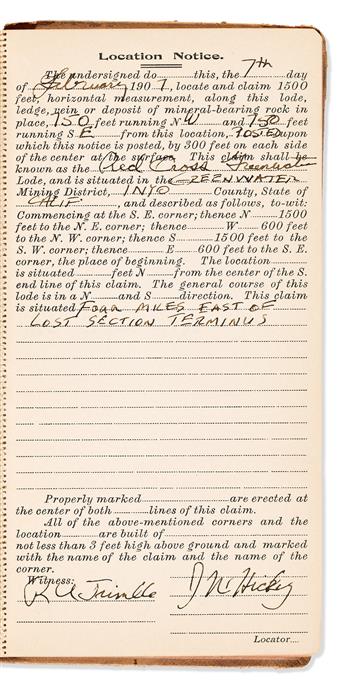 Location Notice.
The undersigned do this, the 7th day
of February 1907, locate and claim 1500
feet, horizontal measurement, along this lode,
ledge, vein or deposit of mineral-bearing rock in
place, 750 feet running N W and 750 feet
running S E from this location, POSTED upon
which this notice is posted, by 300 feet on each side
of the center at the surface. This claim shall be
known as the Red Cross
Lode, and is situated in the GREENWATER
Mining District, INYO County, State of
CALIF, and described as follows, to-wit:
Commencing at the S. E. corner; thence N 1500
feet to the N. E. corner; thence W 600 feet
to the N. W. corner; thence S 1500 feet to the
S. W. corner; thence E 600 feet to the S. E.
corner, the place of beginning. The location
is situated feet N from the center of the S.
end line of this claim. The general course of this
lode is in a N and S direction. This claim
is situated FOUR MILES EAST OF
LOST SECTION TERMINUS
Properly marked are erected at
the center of both lines of this claim.
All of the above-mentioned corners and the
location are built of
not less than 3 feet high above ground and marked
with the name of the claim and the name of the
corner.
Witness:
R A Trimble J N Hickey
Locator